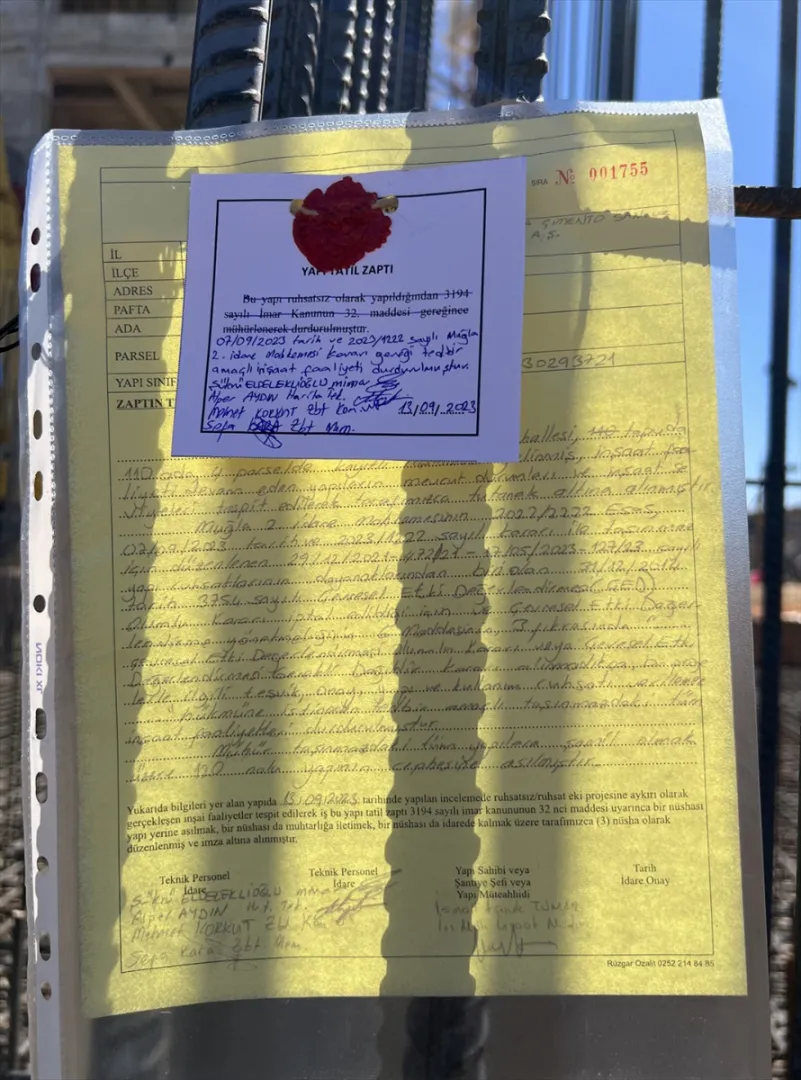 SIRA № 001755
ÇİMENTO SAN.
A.Ş.
İL
İLÇE
ADRES
PAFTA
ADA
PARSEL
30293721
YAPI SINIF
ZAPTIN T
YAPI TATİL ZAPTI
Bu yapı ruhsatsız olarak yapıldığından 3194
sayılı İmar Kanunun 32. maddesi gereğince
mühürlenerek durdurulmuştur.
07/09/2023 tarih ve 2023/1222 sayılı Muğla
2. idare Mahkemesi kararı gereği tedbir
amaçlı inşaat faaliyeti durdurulmuştur.
Şükrü ELDELEKLİOĞLU mimar
Alper AYDIN Harita Tek.
Mehmet KORKUT Zbt Kom. 13/09/2023
Sefa KARA Zbt Mem.
hallesi, 110
110 ada 4 parselde kayıtlı inşaat faa
liyeti devam eden yapıların mevcut durumları ve inşaat se
viyeleri tespit edilerek tarafımızca tutanak altına alınmıştır
Muğla 2 idare Mahkemesinin 2022/2222 Esas,
tarih ve 2023/1222 sayılı kararı ile taşınmaz
için düzenlenen 29/12/2021 17/05/2023 sayılı
yapı ruhsatlarının dayanaklarından biri olan
tarih 3754 sayılı Çevresel Etki Değerlendirmesi (ÇED)
Olumlu kararı iptal edildiği için ve Çevresel Etki Değer
lendirme yönetmeliğinin 6 Maddesinin 3 fıkrasında "
Çevresel Etki Değerlendirmesi Olumlu Kararı veya Çevresel Etki
Değerlendirmesi Gerekli Değildir Kararı alınmadıkça bu proje
lerle ilgili teşvik, onay, yapı ve kullanım ruhsatı verilemez
" hükmüne istinaden tedbir amaçlı taşınmazdaki tüm
inşaat faaliyetleri durdurulmuştur
Mühür taşınmazdaki tüm yapılara şamil olmak
üzere 120 nolu yapının cephesine asılmıştır.
Yukarıda bilgileri yer alan yapıda 13/09/2023 tarihinde yapılan incelemede ruhsatsız/ruhsat eki projesine aykırı olarak
gerçekleşen inşai faaliyetler tespit edilerek iş bu yapı tatil zaptı 3194 sayılı imar kanununun 32 nci maddesi uyarınca bir nüshası
yapı yerine asılmak, bir nüshası da muhtarlığa iletimek, bir nüshası da idarede kalmak üzere tarafımızca (3) nüsha olarak
düzenlenmiş ve imza altına alınmıştır.
Teknik Personel Teknik Personel Yapı Sahibi veya Tarih
İdare İdare Şantiye Şefi veya İdare Onay
Yapı Müteahhidi
Şükrü ELDELEKLİOĞLU mimar
Alper AYDIN Hrt. Tek.
Mehmet KORKUT Zbt Kom.
Sefa Kara Zbt Mem.
Rüzgar Ozalit 0252 214 84 85
NOKI XL